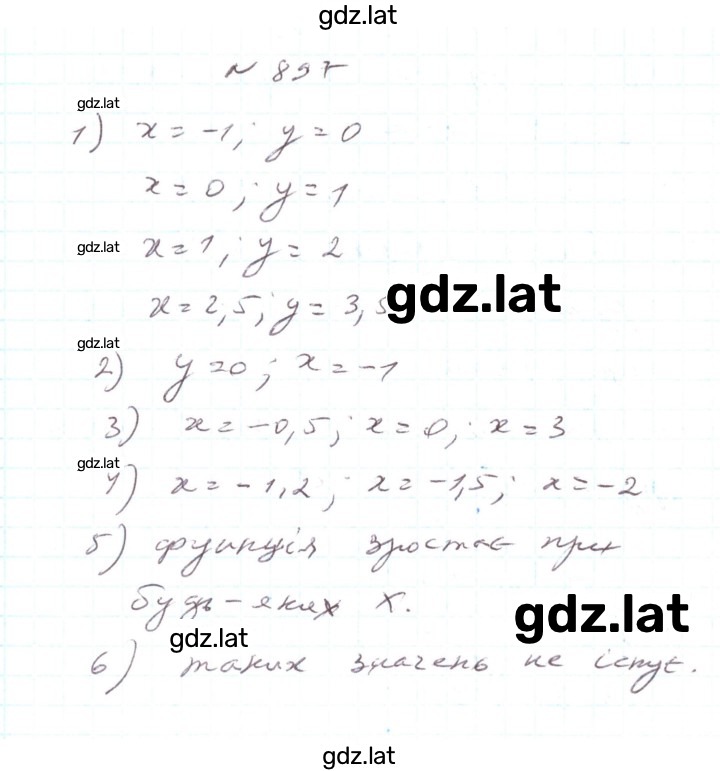 gdz.lat
№ 897
gdz.lat
1) x = -1; y = 0
x = 0; y = 1
gdz.lat
x = 1; y = 2
x = 2,5; y = 3,5
gdz.lat
gdz.lat
2) y = 0; x = -1
3) x = -0,5; x = 0; x = 3
gdz.lat
4) x = -1,2; x = -1,5; x = -2
5) функція зростає при
будь-яких x.
gdz.lat
gdz.lat
6) таких значень не існує.
gdz.lat